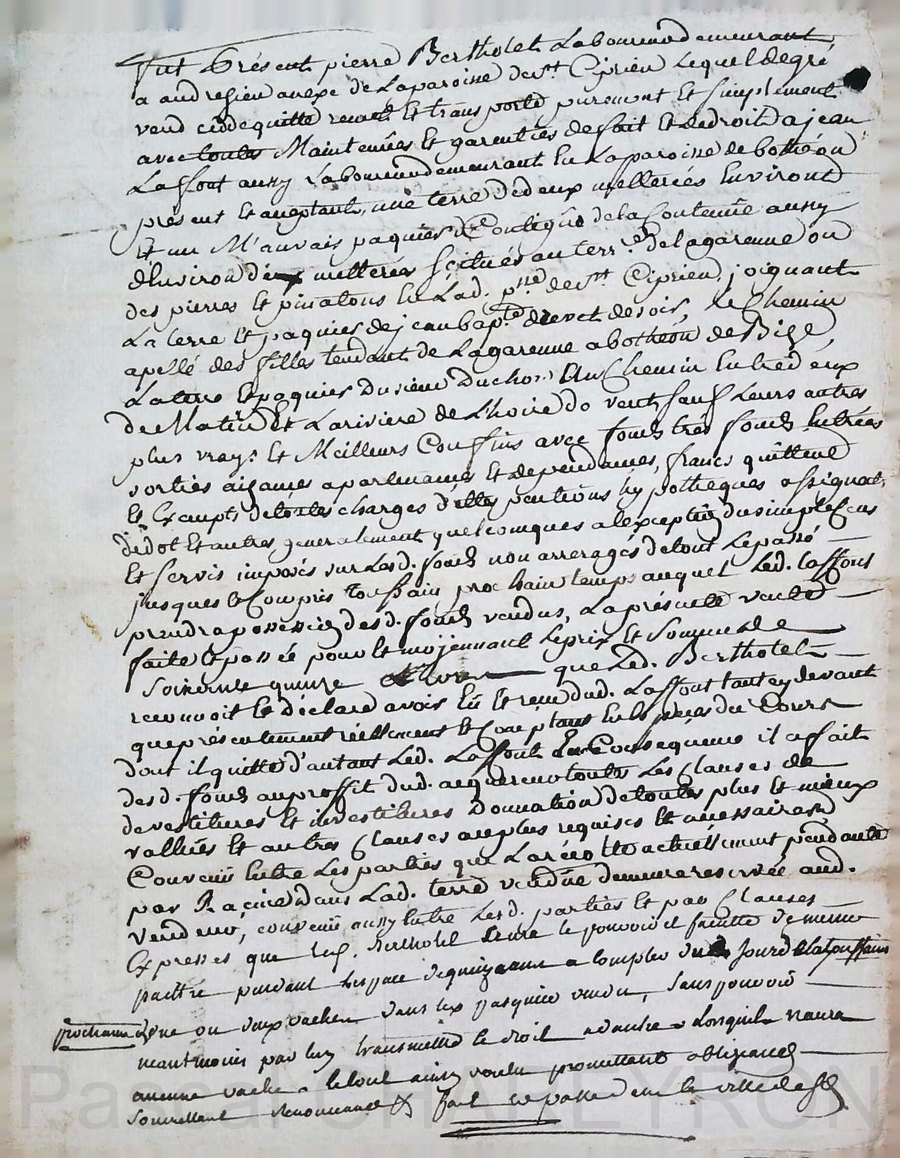 Fut Présent pierre Bertholet Laboureur demeurant
a andresieu anexe de Laparoisse de st. Ciprien Lequel degré
vend cedde quitte remet Et transporte purement Et simplement
avec toutes Maintenües Et garenties de fait Et de droit a jean
Laffont aussy Laboureur demeurant En Laparoisse de bothéon
présent Et aceptant, une terre de deux metterées Environt
Et un Mauvais paquier Contigüe de la Contenüe aussy
d'Environ deux metterées scitués au terr.re de lagarenne ou
des pierres Et pinatons En Lad. p.sse de st Ciprien joignant
La terre Et paquier de jean bap.te de soir, Le Chemin
apellé des filles tendant de Lagarenne a bothéon de Bize,
La terre Et paquier du sieur Duchon Un Chemin Entre deux
de Matin Et La riviere de L'hoire de vent sauf Leurs autres
plus vrays Et Meilleurs Confins avec fonds tres fonds Entrées
sorties aizances apartenances Et dependances, francs quittes
Et Exempts de toutes charges dettes pentions hypotheques assignat
de dot Et autres generalement quelcomques a l'exception du simple Cens
Et servis imposés sur Lesd. fonds non arreragés de tout Le passé
jusques Et Compris Toussain prochain temps auquel Led. Laffont
prendra possession desd. fonds vendus, La présente vente
faite Et passée pour Et moyennant Le prix Et Somme de
soixente quinze Livres que Led. Bertholet
reconnoit Et déclare avoir Eü Et receu dud. Laffont tant cy devant
que présentement réellement Et Comptant En Especes du Cours
dont il quitte d'autant Led. Laffont En Consequence il a fait
desd. fonds au proffit dud. acquereur toutes Les Clauses de
devestitures Et investitures Donnation de toutes plus Et mieux
vallües Et autres Clauses au plus requises Et nécessaires
Convenü Entre Les parties que La récolte actuellement pendante
par Racine dans Lad. terre vendüe demeure reservée aud.
Vendeur, convenü aussy Entre Lesd. parties Et par Clauses
Expresses que led. Bertholet aura le pouvoir et faculté de mener
paitre pendant l'espace de quinze ans a compter du jour de latoussains
prochaine Une ou deux vaches dans led pasquier vendu, sans pouvoir
neantmoins par luy transmettre le droit a d'autre Lorsquil n'aura
aucune vache a Le tout ainsy voulu promettant obligeant
soumettant renonceant &c fait Et passé dans la ville de st
Pascal CHALEYRON